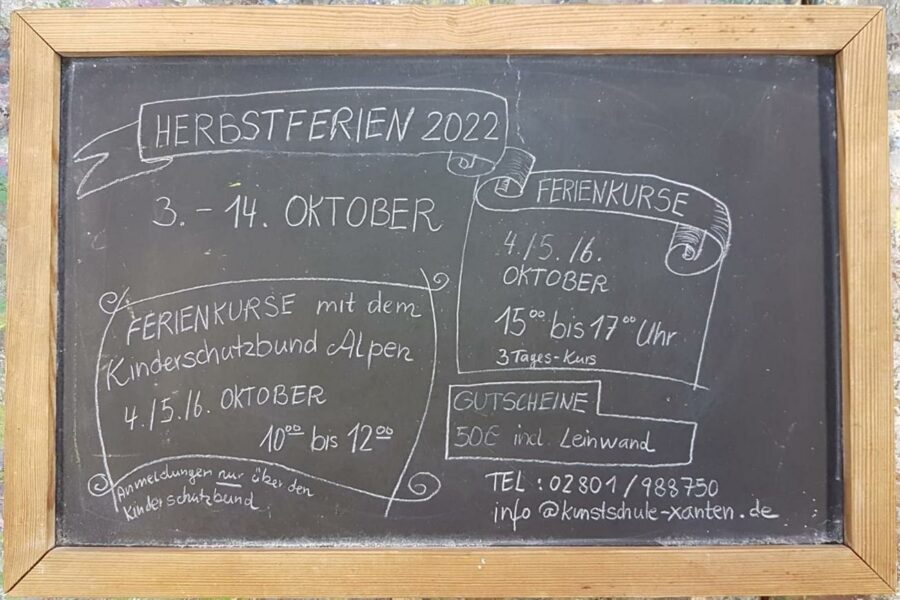 HERBSTFERIEN 2022
3. – 14. OKTOBER
FERIENKURSE mit dem
Kinderschutzbund Alpen
4./5./6. OKTOBER
10⁰⁰ bis 12⁰⁰
Anmeldungen nur über den
Kinderschutzbund
FERIENKURSE
4./5./6.
OKTOBER
15⁰⁰ bis 17⁰⁰ Uhr
3 Tages-Kurs
GUTSCHEINE
50€ incl. Leinwand
TEL : 02801/988750
info@kunstschule-xanten.de